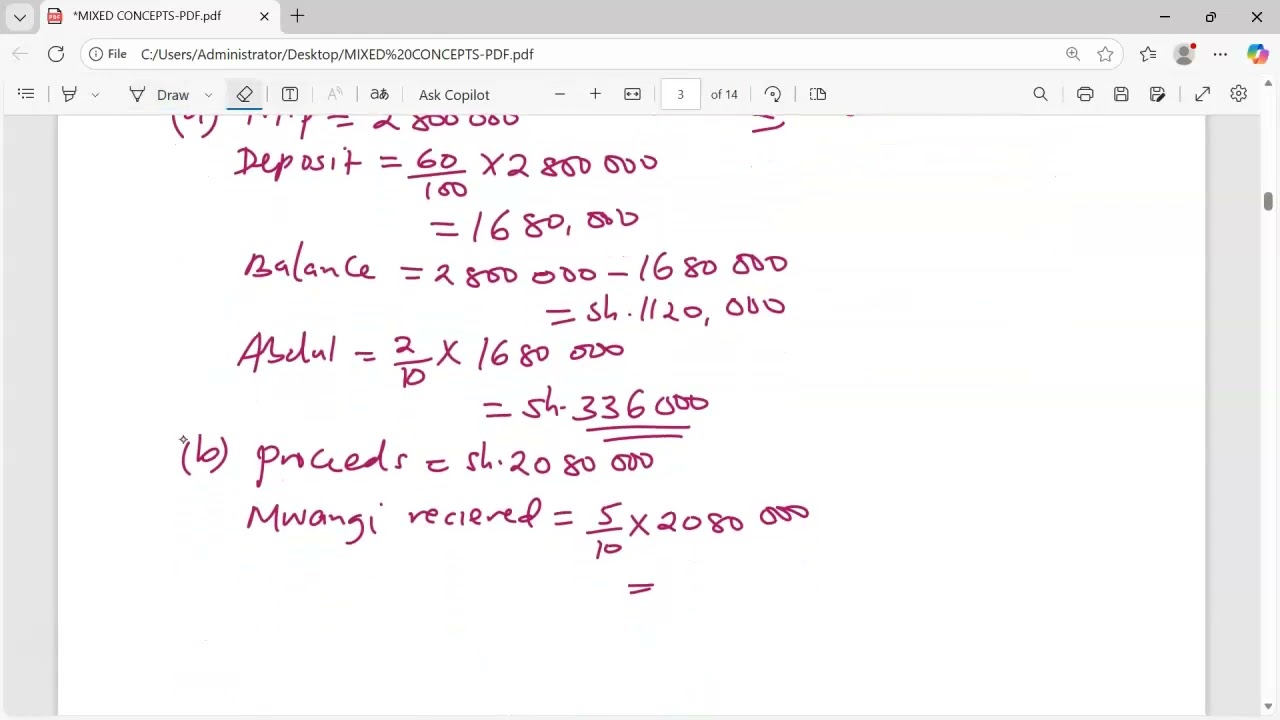 *MIXED CONCEPTS-PDF.pdf
File C:/Users/Administrator/Desktop/MIXED%20CONCEPTS-PDF.pdf
Draw aあ Ask Copilot 3 of 14
= 2 800 000
Deposit = 60/100 × 2 800 000
= 1680,000
Balance = 2 800 000 - 1680 000
= Sh.1120,000
Abdul = 2/10 × 1680 000
= Sh.336000
(b) proceeds = Sh.2080 000
Mwangi reciered = 5/10 × 2080 000
=